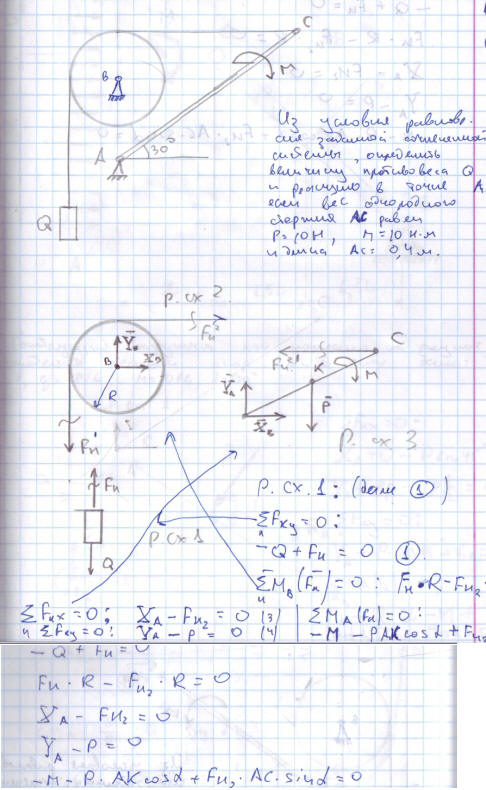 C
B
M
A 30°
Q
Из условия равнове-
сия заданной сочлененной
системы, определить
величину противовеса Q
и реакцию в точке A
если вес однородного
стержня AC равен
P=10H, M=10 н.м
и длина AC= 0,4 м.
р. сх 2.
Fн²
Y̅в
B X̅в
R
Fн'
C
Fн²'
K
M
Y̅A
P̅
р. сх 3
Fн
Q
р сх 1
р. сх. 1: (далее ①)
∑Fкy = 0:
-Q + Fн = 0 ①.
∑M̅в(F̅к) = 0: Fн•R-Fн₂
∑Fкx = 0: XA - Fн₂ = 0 (3) ∑MA(Fк)=0:
∑Fкy = 0: YA - P = 0 (4) -M - PAKcosα + Fн₂
-Q + Fн = 0
Fн · R - Fн₂ · R = 0
XA - Fн₂ = 0
YA - P = 0
-M - P · AKcosα + Fн₂ · AC · sinα = 0